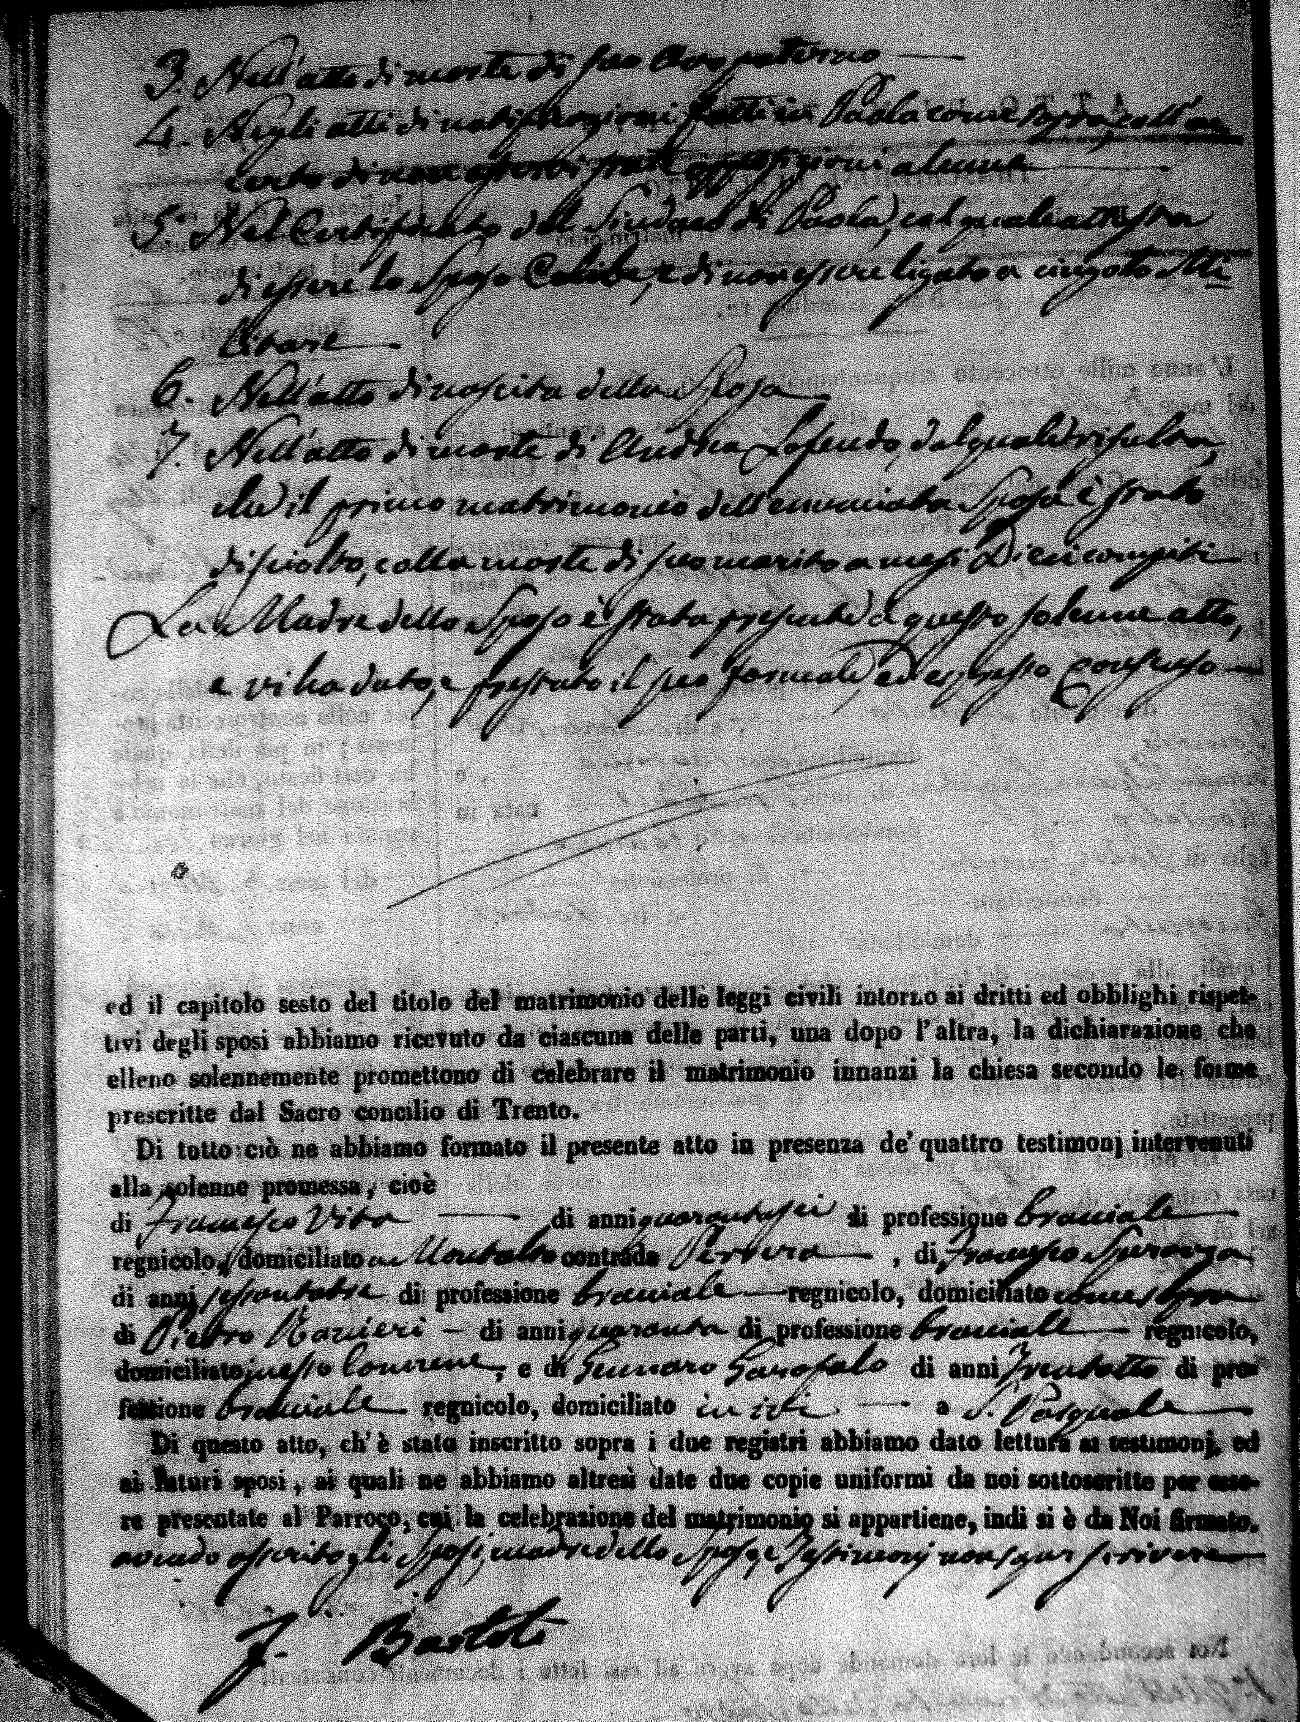 3. Nell'atto di morte di suo Avo paterno
4. Negli atti di notificazioni fatti in Paola come sopra, coll'ac
certo di non essersi fatte opposizioni alcune
5. Nel Certificato del Sindaco di Paola, col quale attesta
di essere lo Sposo Celibe, e di non essere ligato a vincolo Mi
litare
6. Nell'atto di nascita della Sposa
7. Nell'atto di morte di Andrea Losendo, dal quale risulta,
che il primo matrimonio dell'enunciata Sposa è stato
disciolto, colla morte di suo marito a mesi Dieci compiti
La Madre dello Sposo è stata presente a questo solenne atto,
e vi ha dato, e prestato il suo formale ed espresso Consenso
ed il capitolo sesto del titolo del matrimonio delle leggi civili intorno ai dritti ed obblighi rispet-
tivi degli sposi abbiamo ricevuto da ciascuna delle parti, una dopo l'altra, la dichiarazione che
elleno solennemente promettono di celebrare il matrimonio innanzi la chiesa secondo le forme
prescritte dal Sacro concilio di Trento.
Di tutto ciò ne abbiamo formato il presente atto in presenza de' quattro testimonj intervenuti
alla solenne promessa, cioè
di Francesco Vita di anni quarantasei di professione bracciale
regnicolo, domiciliato in Montalto contrada , di Francesco
di anni sessantatre di professione bracciale regnicolo, domiciliato come sopra
di Pietro Ranieri di anni quaranta di professione bracciale regnicolo,
domiciliato in esso Comune, e di Gennaro Garofalo di anni Trentotto di pro-
fessione bracciale regnicolo, domiciliato in ivi a S. Pasquale
Di questo atto, ch'è stato inscritto sopra i due registri abbiamo dato lettura ai testimonj, ed
ai futuri sposi, ai quali ne abbiamo altresì date due copie uniformi da noi sottoscritte per esse-
re presentate al Parroco, cui la celebrazione del matrimonio si appartiene, indi si è da Noi firmato.
avendo asserito gli Sposi, madre dello Sposo, e Testimonj non saper scrivere